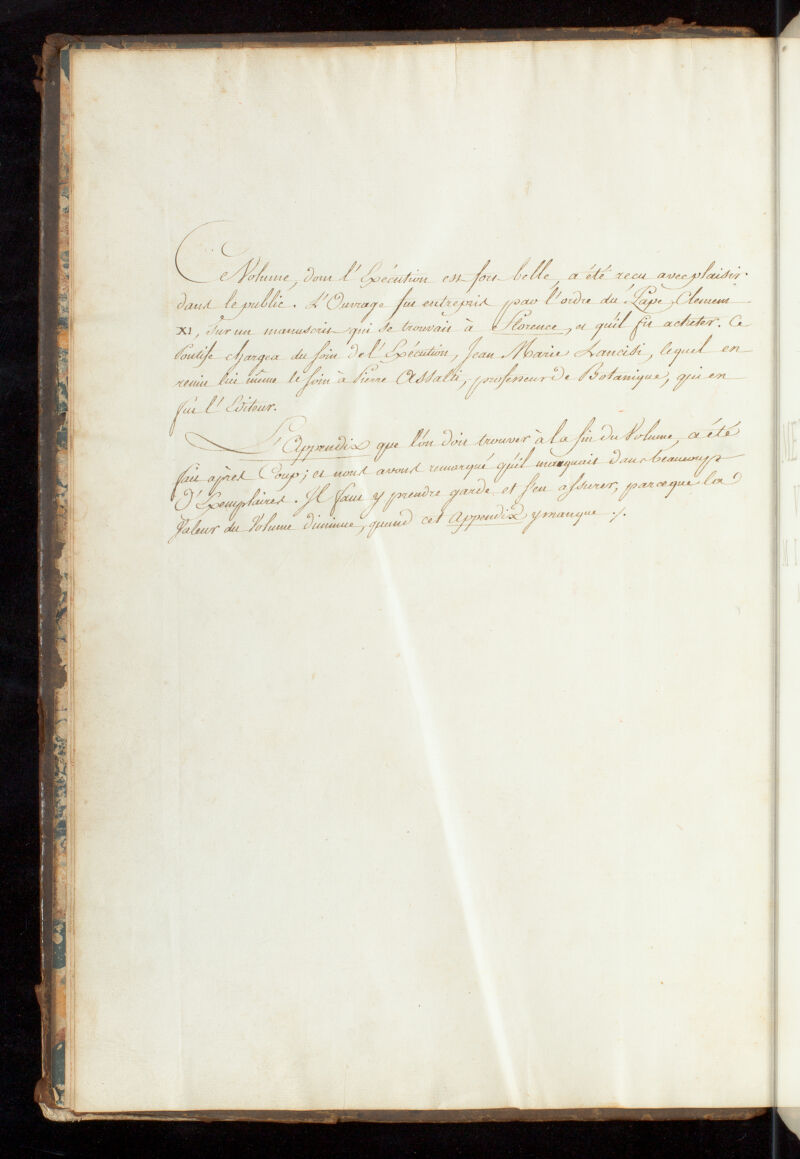 Ce Volume, dont l'Exécution est fort belle, a été reçu avec plaisir
dans le public. L'Ouvrage fut entrepris par l'ordre du Pape Clement
XI, sur un manuscrit qui se trouvait à Florence, et qu'il fit acheter. Ce
Pontife chargea du soin de l'Exécution, Jean Marie Lancisi, lequel en
remit lui même le soin à Pierre Assalti, professeur de Botanique, qui en
fut l'Editeur.
L'Appendix que l'on doit trouver à la fin du Volume, a été
fait après Coup; et nous avons remarqué qu'il manquait dans beaucoup
d'Exemplaires. Il faut y prendre garde et s'en assurer, parceque la
Valeur du Volume diminue, quand cet Appendix y manque ./.